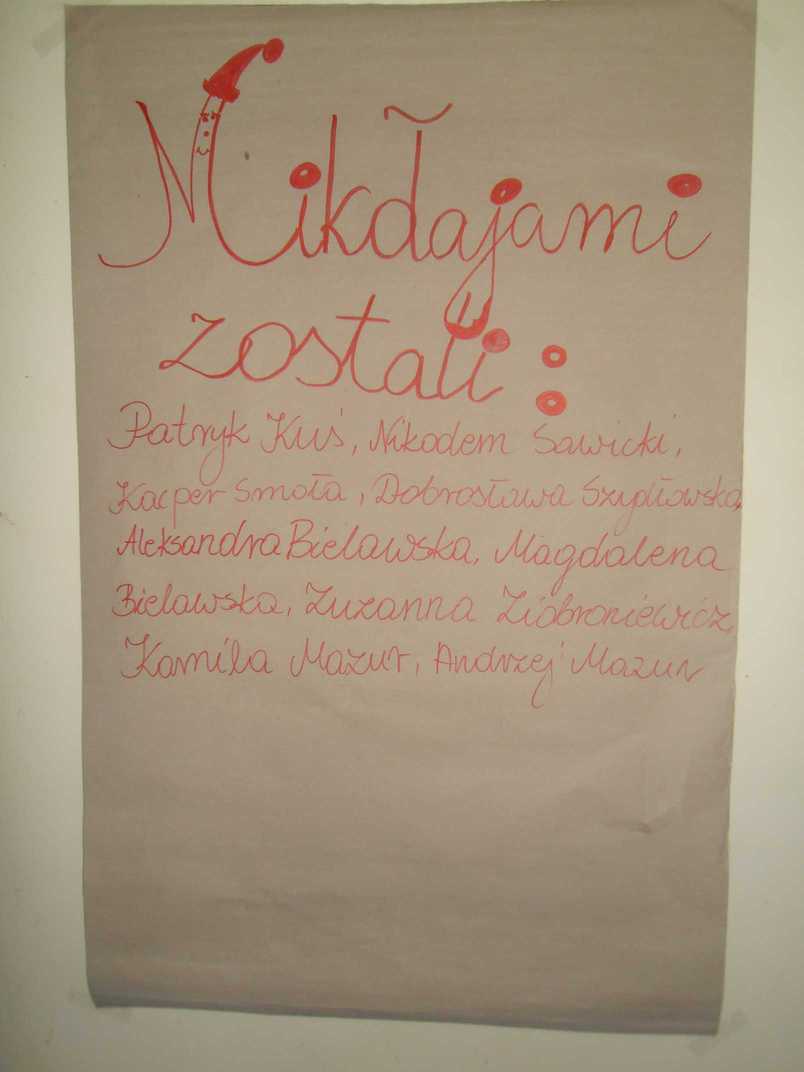 Mikołajami
zostali:
Patryk Kuś, Nikodem Sawicki,
Kacper Smoła, Dobrosława Szydłowska,
Aleksandra Bielawska, Magdalena
Bielawska, Zuzanna Ziobroniewicz,
Kamila Mazur, Andrzej Mazur